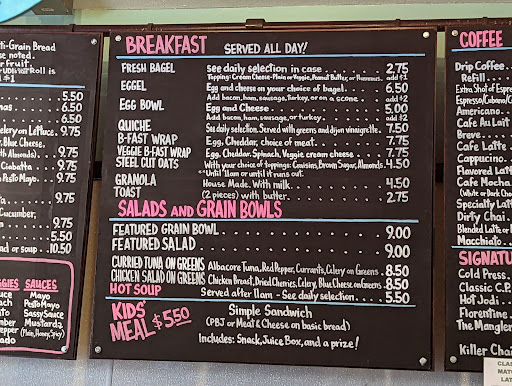 BREAKFAST SERVED ALL DAY!
FRESH BAGEL see daily selection in case 2.75
Topping: Cream Cheese-Plain or Veggie, Peanut Butter, or Hummus. add $1
EGGEL Egg and cheese on your choice of bagel. 6.50
Add bacon, ham, sausage, turkey, or on a scone add $2
EGG BOWL Egg and Cheese 5.00
Add bacon, ham, sausage, turkey. add $2
QUICHE See daily selection. Served with greens and dijon vinaigrette. 7.50
B-FAST WRAP Egg, Cheddar, choice of meat. 7.75
VEGGIE B-FAST WRAP Egg, Cheddar, Spinach, Veggie cream cheese 7.75
STEEL CUT OATS With your choice of toppings: Craisins, Brown Sugar, Almonds. 4.50
**Until 11am or until it runs out.
GRANOLA House Made. With milk. 4.50
TOAST (2 pieces) with butter. 2.75
SALADS AND GRAIN BOWLS
FEATURED GRAIN BOWL 9.00
FEATURED SALAD 9.00
CURRIED TUNA ON GREENS Albacore Tuna, Red Pepper, Currants, Celery on Greens. 8.50
CHICKEN SALAD ON GREENS Chicken Breast, Dried Cherries, Celery, Blue Cheese on Greens 8.50
HOT SOUP Served after 11am - See daily selection 5.50
KIDS' MEAL $5.50
Simple Sandwich
(PBJ or Meat & Cheese on basic bread)
Includes: Snack, Juice Box, and a prize!
ti-Grain Bread
se noted.
r fruit.
Roll is
$1
5.50
6.50
6.50
elery on Lettuce. 9.75
Blue Cheese,
th Almonds)
Ciabatta 9.75
Pesto Mayo.
9.75
Cucumber,
9.75
5.50
ad or soup 10.50
GGIES SAUCES
Mayo
Pesto Mayo
Sassy Sauce
Mustards
(Plain, Honey, Spicy)
COFFEE
Drip Coffee
Refill
Extra Shot of Espre
Espresso/Cubano/C
Americano
Cafe Au Lait
Breve
Cafe Latte
Cappuccino
Flavored Latt
Cafe Mocha
(White or Dark Choc
Specialty Latt
Dirty Chai
Blended Latte or
Macchiato
SIGNATU
Cold Press
Classic C.P.
Hot Jodi
Florentine
The Mangler
Killer Chai
CLAS
MATC
LAT